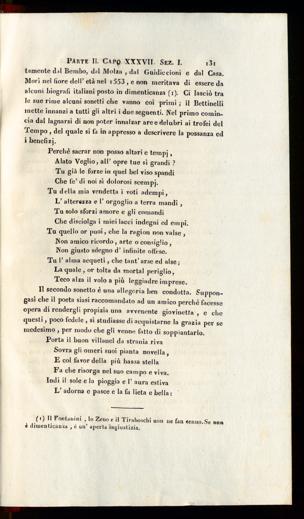 PARTE II. CAPO XXXVII. SEZ. I. 131
tamente dal Bembo, dal Molza, dal Guidiccioni e dal Casa.
Morì nel fiore dell' età nel 1553, e non meritava di essere da
alcuni biografi italiani posto in dimenticanza (1). Ci lasciò tra
le sue rime alcuni sonetti che vanno coi primi; il Bettinelli
mette innanzi a tutti gli altri i due seguenti. Nel primo comin-
cia dal lagnarsi di non poter innalzar are e delubri ai trofei del
Tempo, del quale si fa in appresso a descrivere la possanza ed
i benefizj.
Perchè sacrar non posso altari e tempj,
Alato Veglio, all' opre tue sì grandi?
Tu già le forze in quel bel viso spandi
Che fe' di noi sì dolorosi scempj.
Tu della mia vendetta i voti adempi,
L' alterezza e l' orgoglio a terra mandi,
Tu solo sforzi amore e gli comandi
Che disciolga i miei lacci indegni ed empi.
Tu quello or puoi, che la ragion non valse,
Non amico ricordo, arte o consiglio,
Non giusto sdegno d' infinite offese.
Tu l' alma acqueti, che tant' arse ed alse;
La quale, or tolta da mortal periglio,
Teco alza il volo a più leggiadre imprese.
Il secondo sonetto è una allegoria ben condotta. Suppon-
gasi che il poeta siasi raccomandato ad un amico perchè facesse
opera di rendergli propizia una avvenente giovinetta, e che
questi, poco fedele, si studiasse di acquistarne la grazia per se
medesimo, per modo che gli venne fatto di soppiantarlo.
Porta il buon villanel da strania riva
Sovra gli omeri suoi pianta novella,
E col favor della più bassa stella
Fa che risorga nel suo campo e viva.
Indi il sole e la pioggia e l' aura estiva
L' adorna e pasce e la fa lieta e bella:
(1) Il Fontanini, lo Zeno e il Tiraboschi non ne fan cenno. Se non
è dimenticanza, è un' aperta ingiustizia.